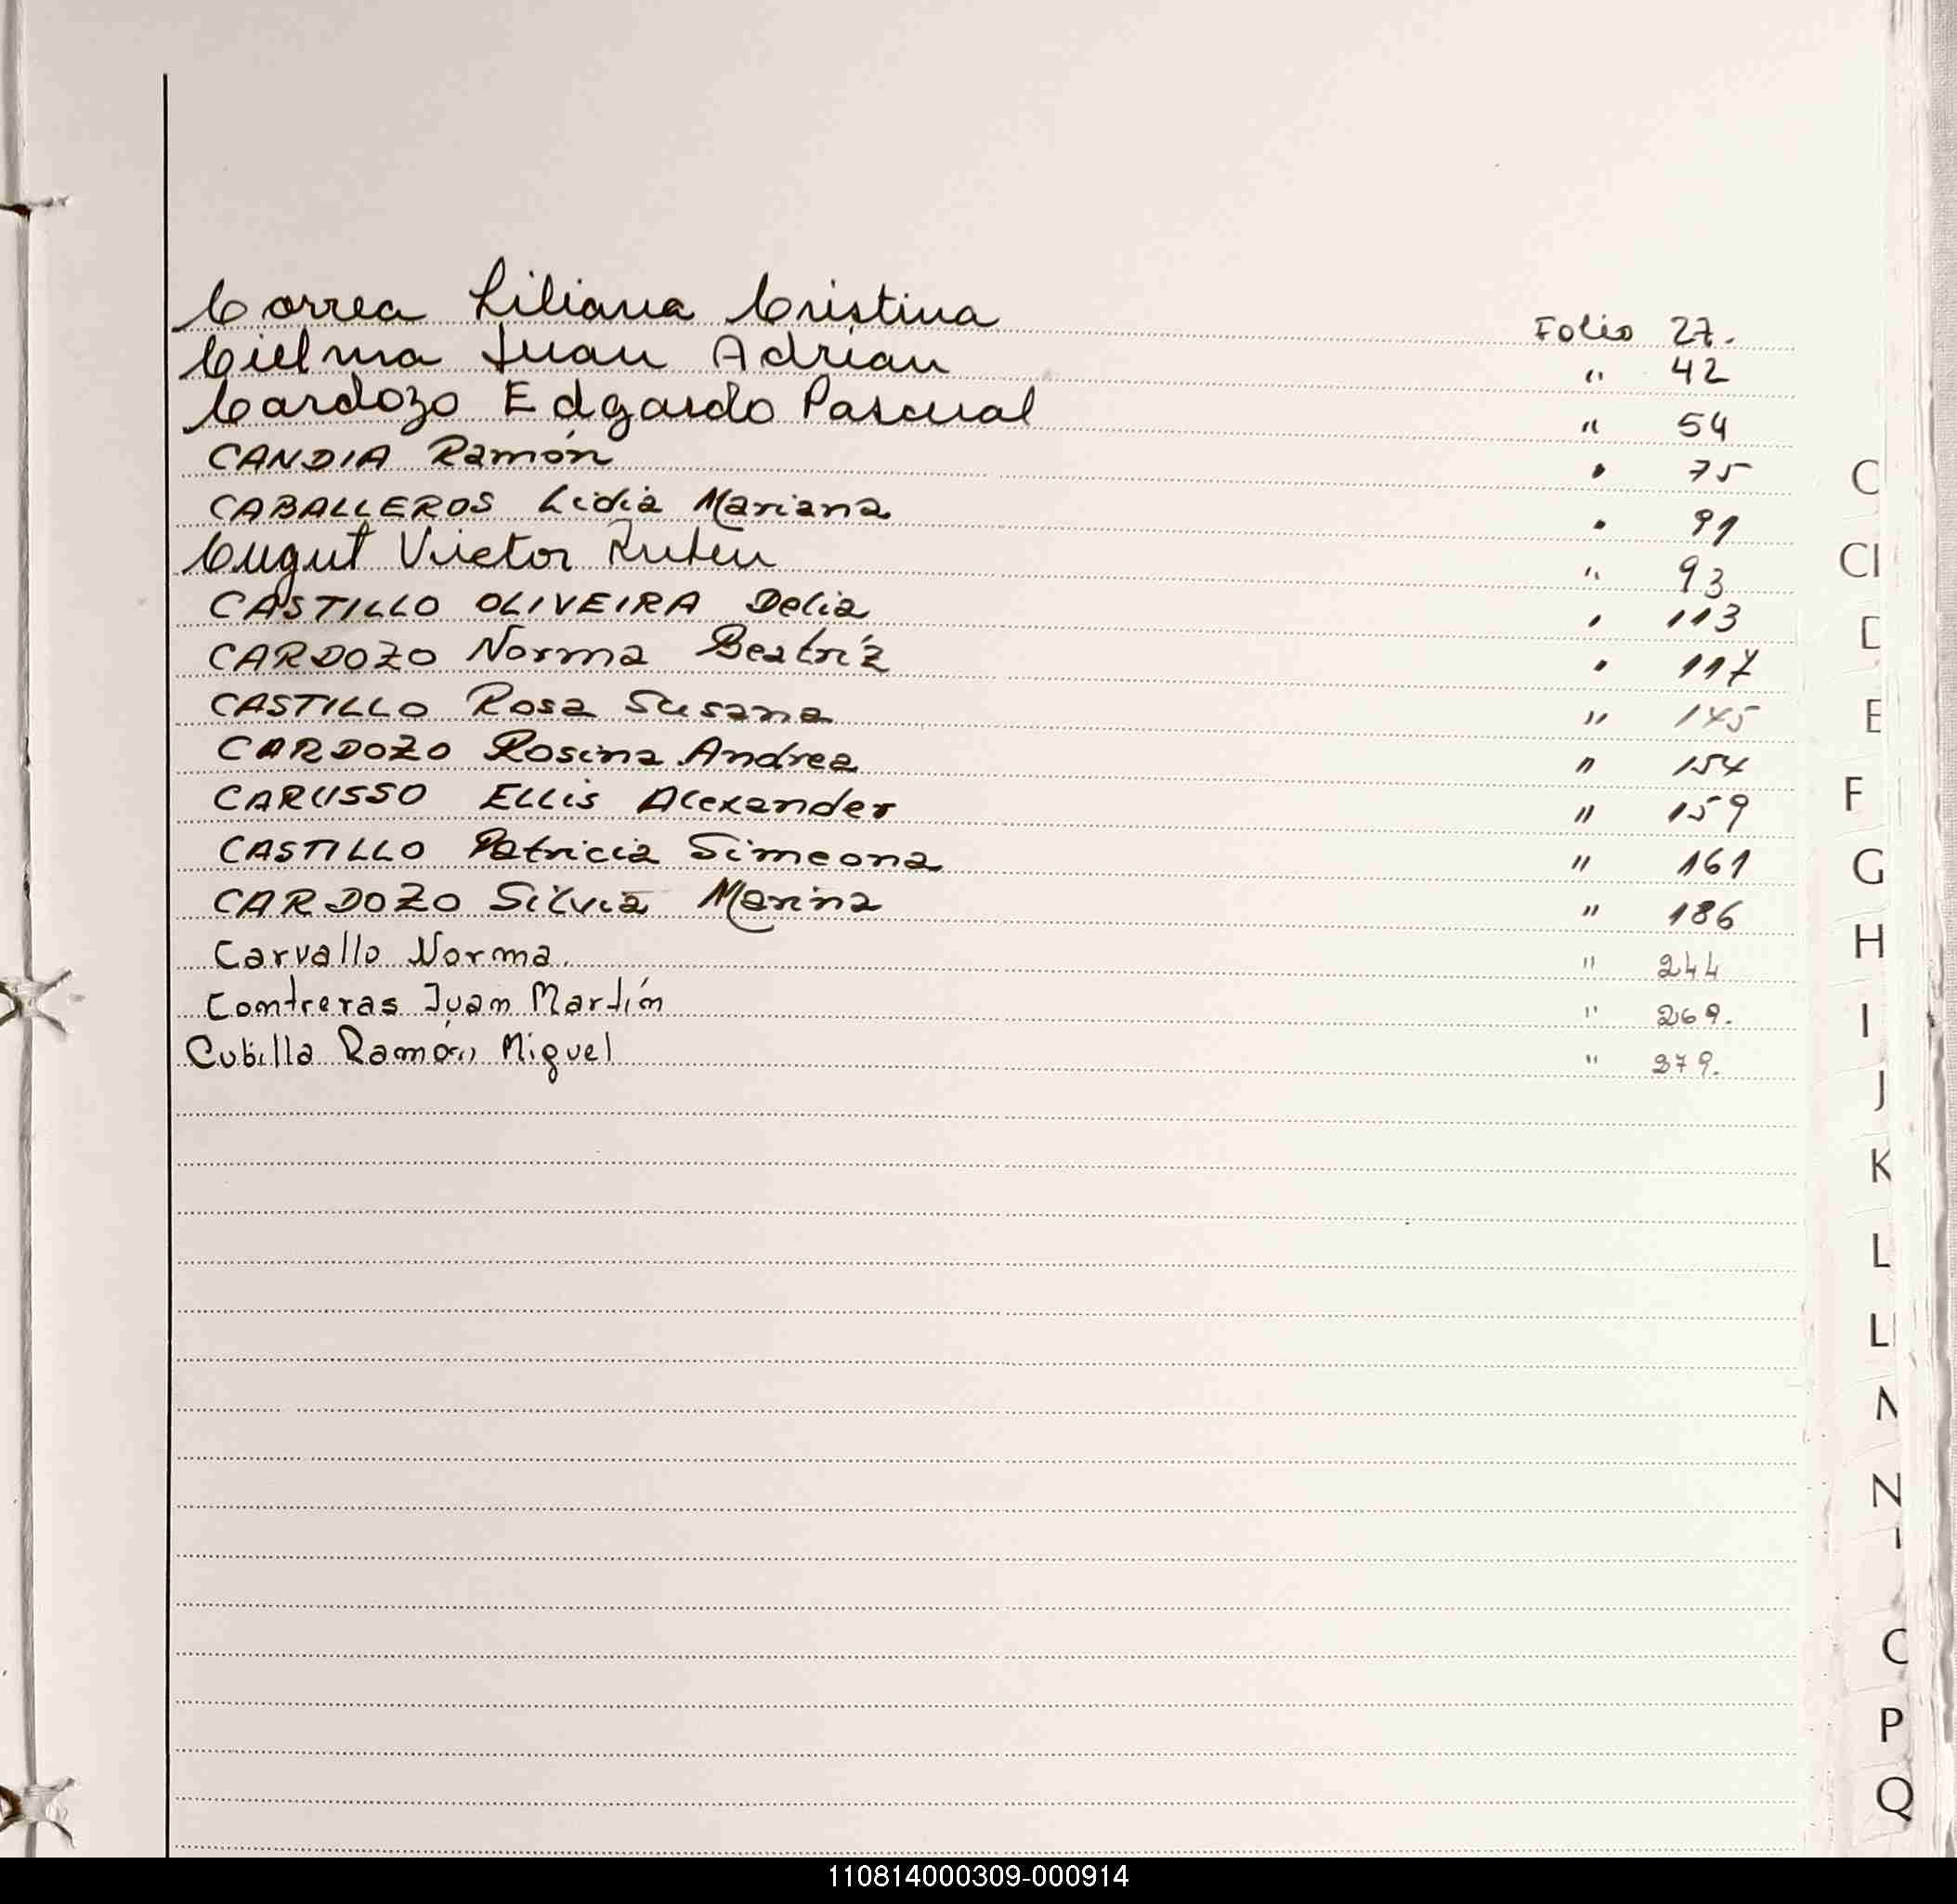 Correa Liliana Cristina Folio 27.
Cielma Juan Adrian " 42
Cardozo Edgardo Pascual " 54
CANDIA Ramón " 75
CABALLEROS Lidia Mariana " 91
Cugut Victor Ruben " 93
CASTILLO OLIVEIRA Delia " 113
CARDOZO Norma Beatríz " 117
CASTILLO Rosa Susana " 145
CARDOZO Rosina Andrea " 154
CARUSSO ELLis Alexander " 159
CASTILLO Patricia Simeona " 161
CARDOZO Silvia Marina " 186
Carvallo Norma. " 244
Contreras Juan Martín " 269.
Cubilla Ramón Miguel " 379.
C
CH
D
E
F
G
H
I
J
K
L
LL
N
P
Q
110814000309-000914